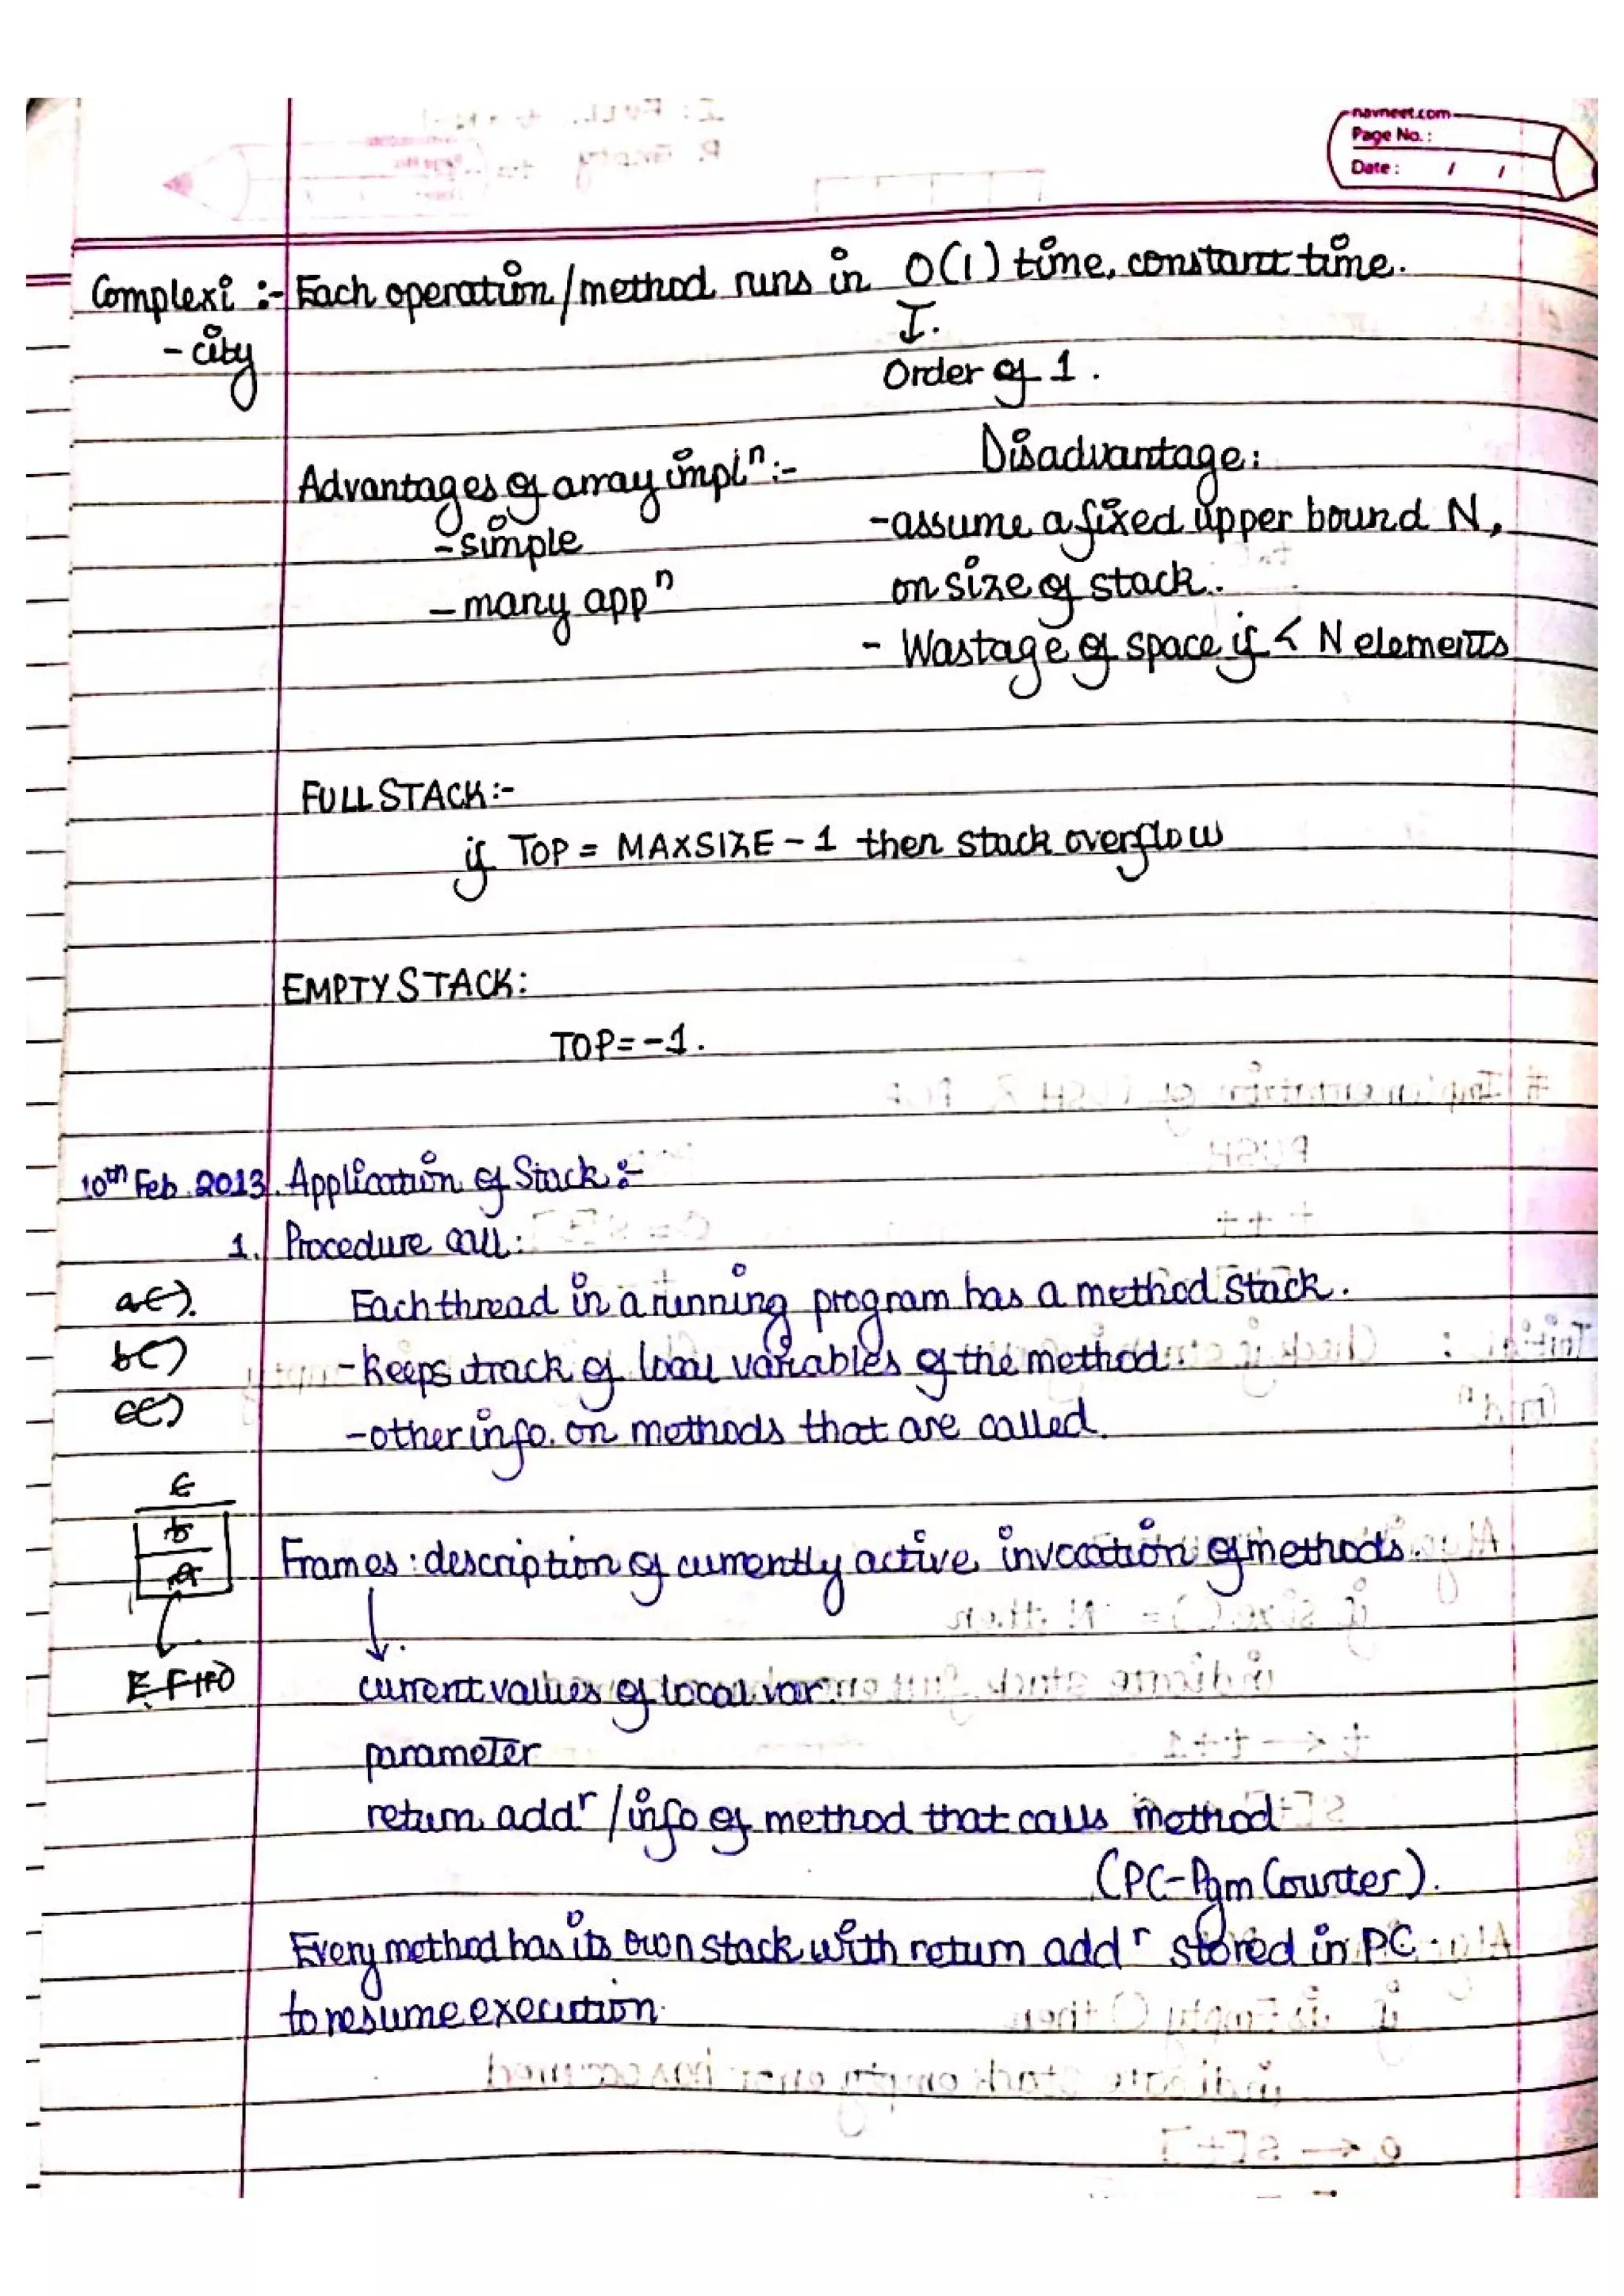 navneet.com
Page No. :
Date : / /
Complexi :- Each operation/method runs in O(1) time, constant time.
-city
Order of 1.
Advantages of array implⁿ :-
-simple
-many appⁿ
Disadvantage:
-assume a fixed upper bound N,
on size of stack.
- Wastage of space if < N elements
FULL STACK :-
if TOP = MAXSIZE - 1 then stack overflow
EMPTY STACK :
TOP = -1.
10th Feb. 2013. Application of Stack :-
1. Procedure call :
a().
b()
c()
Each thread in a running program has a method stack.
-keeps track of local variables of the method.
-other info. on methods that are called.
b
a
Frames : description of currently active invocation of methods.
current values of local var
parameter
return addʳ /info of method that calls method
(PC-Pgm Counter).
Every method has its own stack with return addʳ stored in PC
to resume execution.